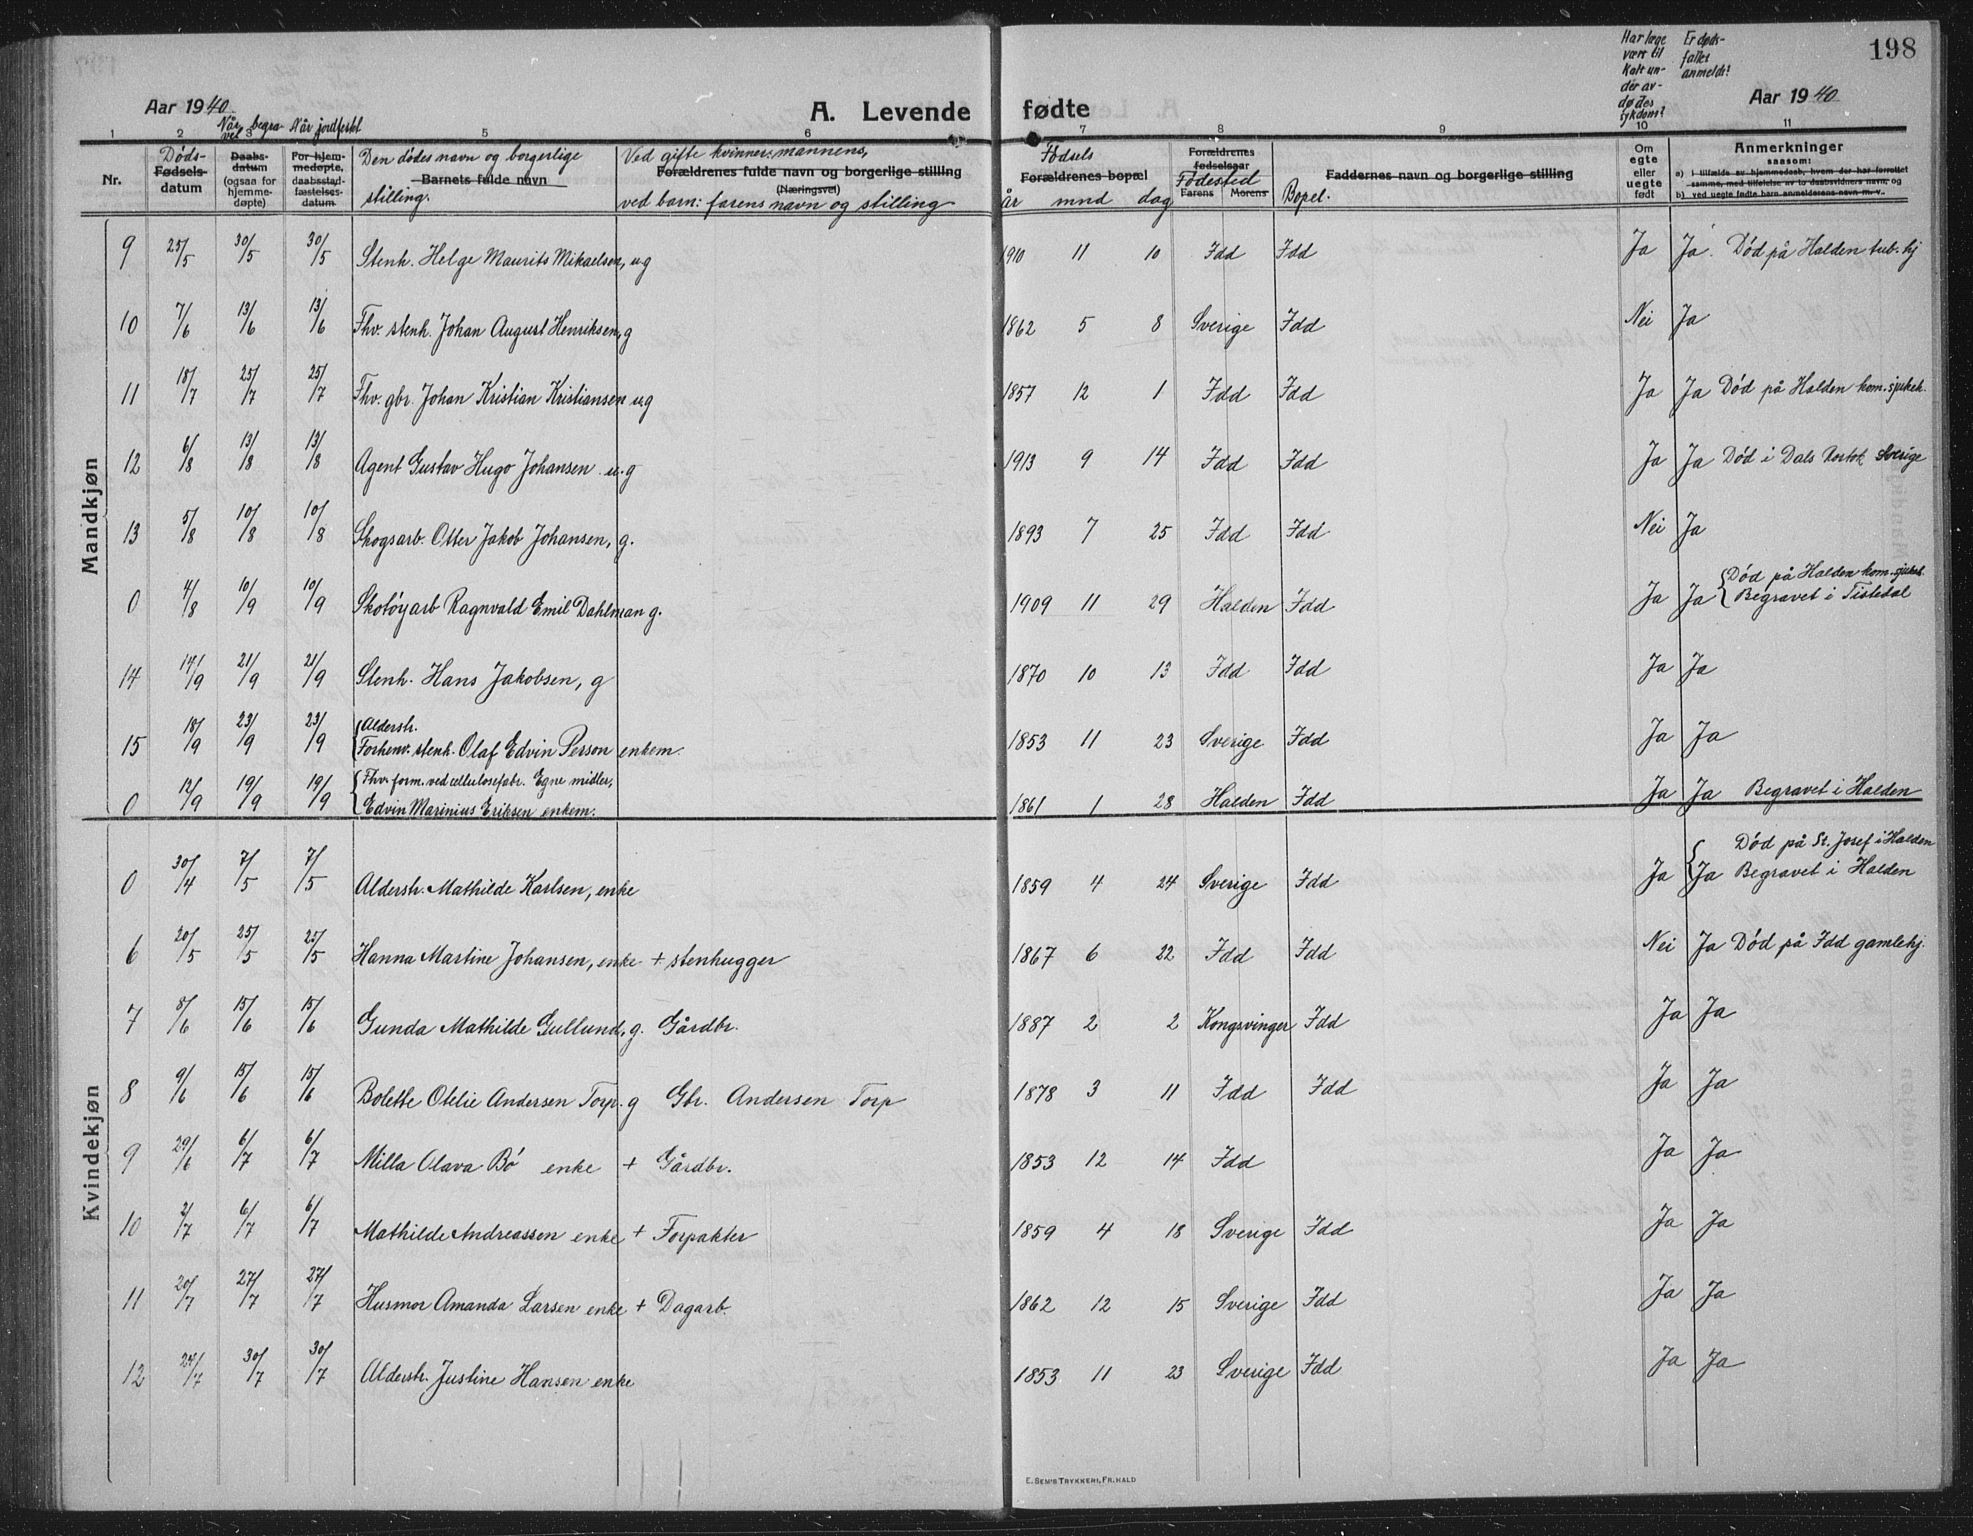 Har læge Er døds- 198
vært til faldt
Kalt un- anmeldt?
der av-
dødes
sykdom?
Aar 1940 A. Levende fødte Aar 1940
Når begra- Når jordfestet
vet
1 2 3 5 6 7 8 9 10 11
Nr. Døds- Fødsels- datum
Daabs- datum (ogsaa for hjemme- døpte)
For hjem- medøpte, daabsstad- fæstelses- datum
Den dødes navn og borgerlige stilling. Barnets fulde navn
Ved gifte kvinner: mannens, Forældrenes fulde navn og borgerlige stilling (Næringsvei) ved barn: farens navn og stilling
Fødsels Forældrenes bopæl år mnd dag
Forældrenes fødselsaar Fødested Farens Morens
Bopel. Faddernes navn og borgerlige stilling
Om egte eller uegte født
Anmerkninger saasom:
a) i tilfælde av hjemmedaab, hvem der har forrettet samme, med tilføielse av to daabsvidners navn, og
b) ved uegte fødte barn anmelderens navn m. v.
Mandkjøn
9 25/5 30/5 30/5 Stenh. Helge Maurits Mikaelsen, ug 1910 11 10 Idd Idd Ja Ja. Død på Halden tub. hj
10 7/6 13/6 13/6 Fhv. stenh. Johan August Henriksen, g 1862 5 8 Sverige Idd Nei Ja
11 18/7 25/7 25/7 Fhv. gbr. Johan Kristian Kristiansen ug 1857 12 1 Idd Idd Ja Ja Død på Halden kom. sjukeh.
12 6/8 13/8 13/8 Agent Gustav Hugo Johansen u.g 1913 9 14 Idd Idd Ja Ja Død i Dals Rostok Sverige
13 5/8 10/8 10/8 Skogsarb. Otter Jakob Johansen, g. 1893 7 25 Idd Idd Nei Ja
0 4/8 10/9 10/9 Skotøyarb Ragnvald Emil Dahlman g. 1909 11 29 Halden Idd Ja Ja Død på Halden kom. sjukeh. Begravet i Tistedal
14 14/9 21/9 21/9 Stenh. Hans Jakobsen, g 1870 10 13 Idd Idd Ja Ja
15 18/9 23/9 23/9 Alderstr. Forhenv. stenh. Olaf Edvin Person enkem. 1853 11 23 Sverige Idd Ja Ja
0 12/9 19/9 19/9 Fhv. form. ved cellulosefabr. Egne midler, Edvin Marinius Eriksen enkem. 1861 1 28 Halden Idd Ja Ja Begravet i Halden
Kvindekjøn
0 30/4 7/5 7/5 Alderstr. Mathilde Karlsen, enke 1859 4 24 Sverige Idd Ja Ja Død på St. Josef i Halden Begravet i Halden
6 20/5 25/5 25/5 Hanna Martine Johansen, enke + stenhugger 1867 6 22 Idd Idd Nei Ja Død på Idd gamlehj.
7 8/6 15/6 15/6 Gunda Mathilde Gullund, g. Gårdbr. 1887 2 2 Kongsvinger Idd Ja Ja
8 9/6 15/6 15/6 Bolette Otelie Andersen Torp. g Gbr. Andersen Torp 1878 3 11 Idd Idd Ja Ja
9 29/6 6/7 6/7 Milla Olava Bø enke + Gårdbr. 1853 12 14 Idd Ja Ja
10 2/7 6/7 6/7 Mathilde Andreassen enke + Forpakter 1859 4 18 Sverige Idd Ja Ja
11 20/7 27/7 27/7 Husmor Amanda Larsen enke + Dagarb. 1862 12 15 Sverige Idd Ja Ja
12 24/7 30/7 30/7 Alderstr. Justine Hansen enke 1853 11 23 Sverige Idd Ja Ja
E. SEM'S TRYKKERI, FR.HALD